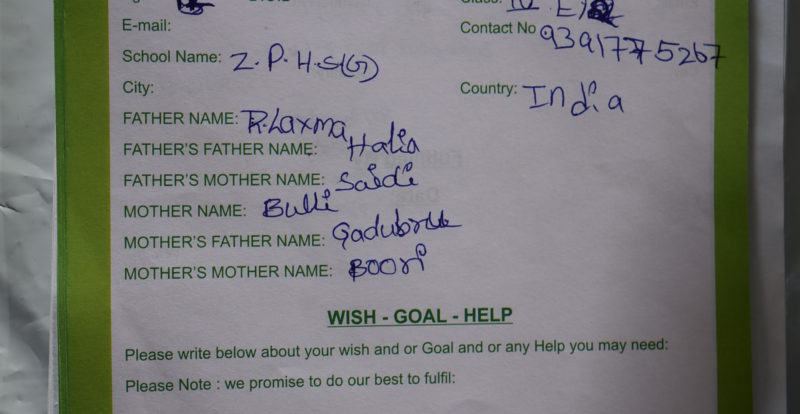 E-mail:
Contact No 9391775267
School Name: Z.P.H.S(G)
City:
Country: India
FATHER NAME: R.Laxma
FATHER'S FATHER NAME: Halia
FATHER'S MOTHER NAME: Saidi
MOTHER NAME: Bulli
MOTHER'S FATHER NAME:
MOTHER'S MOTHER NAME: Boori
WISH - GOAL - HELP
Please write below about your wish and or Goal and or any Help you may need:
Please Note : we promise to do our best to fulfil: